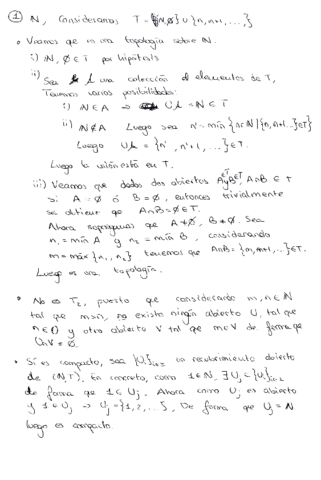 ① ℕ, consideramos T = {ℕ,∅} ∪ {n, n+1, ..., }
• Veamos que es una topología sobre ℕ.
i) ℕ, ∅ ∈ T por hipótesis
ii) Sea 𝒜 una colección de elementos de T,
Tenemos varias posibilidades:
i) ℕ ∈ A ⇒ U𝒜 = ℕ ∈ T
ii) ℕ ∉ A Luego sea n' = min {n ∈ ℕ | {n, n+1, ..} ∈ T}
Luego U𝒜 = {n', n'+1, ...} ∈ T.
Luego la unión está en T.
iii) Veamos que dados dos abiertos A ∈ T y B ∈ T, A∩B ∈ T
si A = ∅ ó B = ∅, entonces trivialmente
se obtiene que A∩B = ∅ ∈ T.
Ahora supongamos que A ≠ ∅, B ≠ ∅. Sea
n₁ = min A y n₂ = min B, considerando
m = max {n₁, n₂} tenemos que A∩B = {m, m+1, ..} ∈ T.
Luego es una topología.
• No es T₂, puesto que considerando m, n ∈ ℕ
tal que m > n, no existe ningún abierto U, tal que
n ∈ U y otro abierto V tal que m ∈ V de forma que
U∩V = ∅.
• Sí es compacto, sea {Uᵢ}ᵢ∈I un recubrimiento abierto
de (ℕ, T), En concreto, como 1 ∈ ℕ, ∃ Uⱼ ∈ {Uᵢ}ᵢ∈I
de forma que 1 ∈ Uⱼ, Ahora como Uⱼ es abierto
y 1 ∈ Uⱼ → Uⱼ = {1, 2, ...}, De forma que Uⱼ = ℕ
luego es compacto.